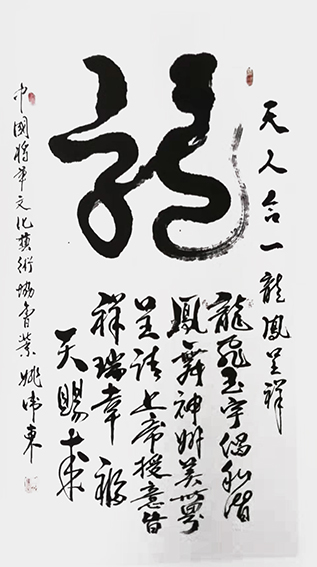 天人合一 龍鳳呈祥
龍
龍飛玉宇
鳳舞神州美世界
呈請上帝授意旨
祥瑞幸福
天賜來
中國將軍文化藝術協會 姚偉東